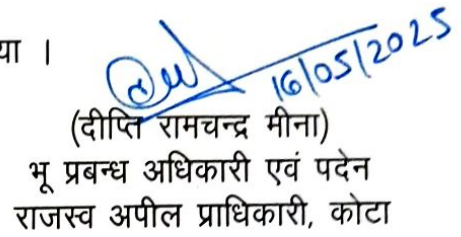 या ।
16/05/2025
(दीप्ति रामचन्द्र मीना)
भू प्रबन्ध अधिकारी एवं पदेन
राजस्व अपील प्राधिकारी, कोटा